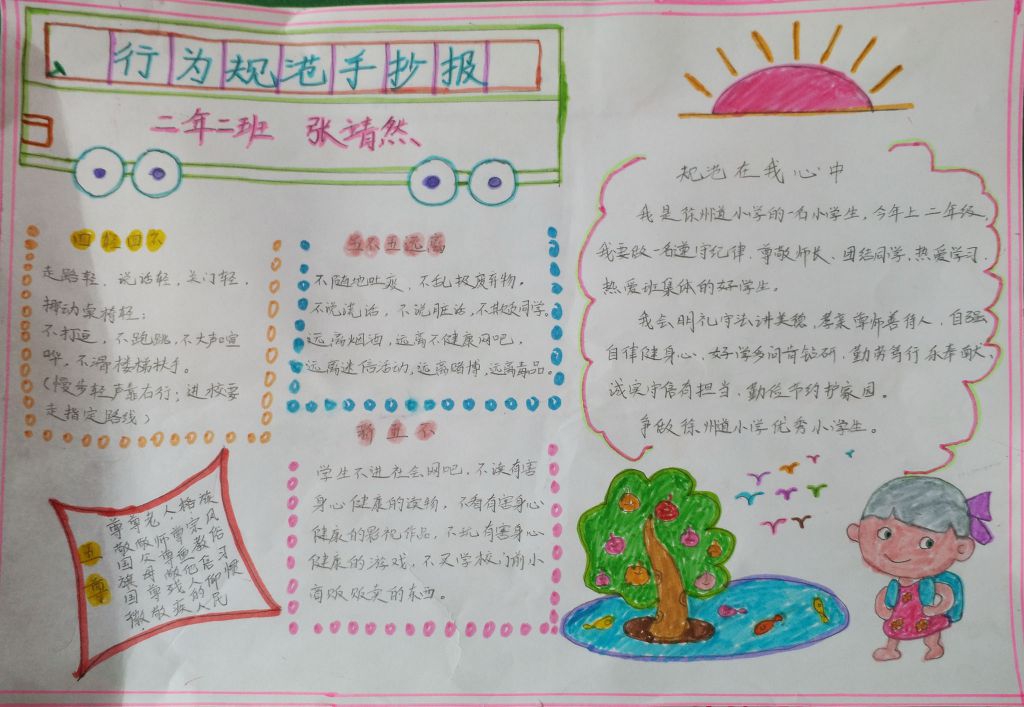 行为规范手抄报
二年二班 张靖然
四轻四不
走路轻、说话轻,关门轻,
挪动桌椅轻;
不打逗,不跑跳,不大声喧
哗,不滑楼梯扶手。
(慢步轻声靠右行;进校要
走指定路线)
五不五远离
不随地吐痰、不乱扔废弃物,
不说谎话,不说脏话,不欺负同学。
远离烟酒,远离不健康网吧,
远离迷信活动,远离赌博,远离毒品。
新五不
学生不进社会网吧,不读有害
身心健康的读物,不看有害身心
健康的影视作品,不玩有害身心
健康的游戏,不买学校门前小
商贩贩卖的东西。
五尊
尊敬国旗国徽
规范在我心中
我是徐州道小学的一名小学生,今年上二年级,
我要做一名遵守纪律、尊敬师长、团结同学、热爱学习、
热爱班集体的好学生。
我会明礼守法讲美德,孝亲尊师善待人,自强
自律健身心,好学多问肯钻研,勤劳笃行乐奉献、
诚实守信有担当,勤俭节约护家园。
争做徐州道小学优秀小学生。